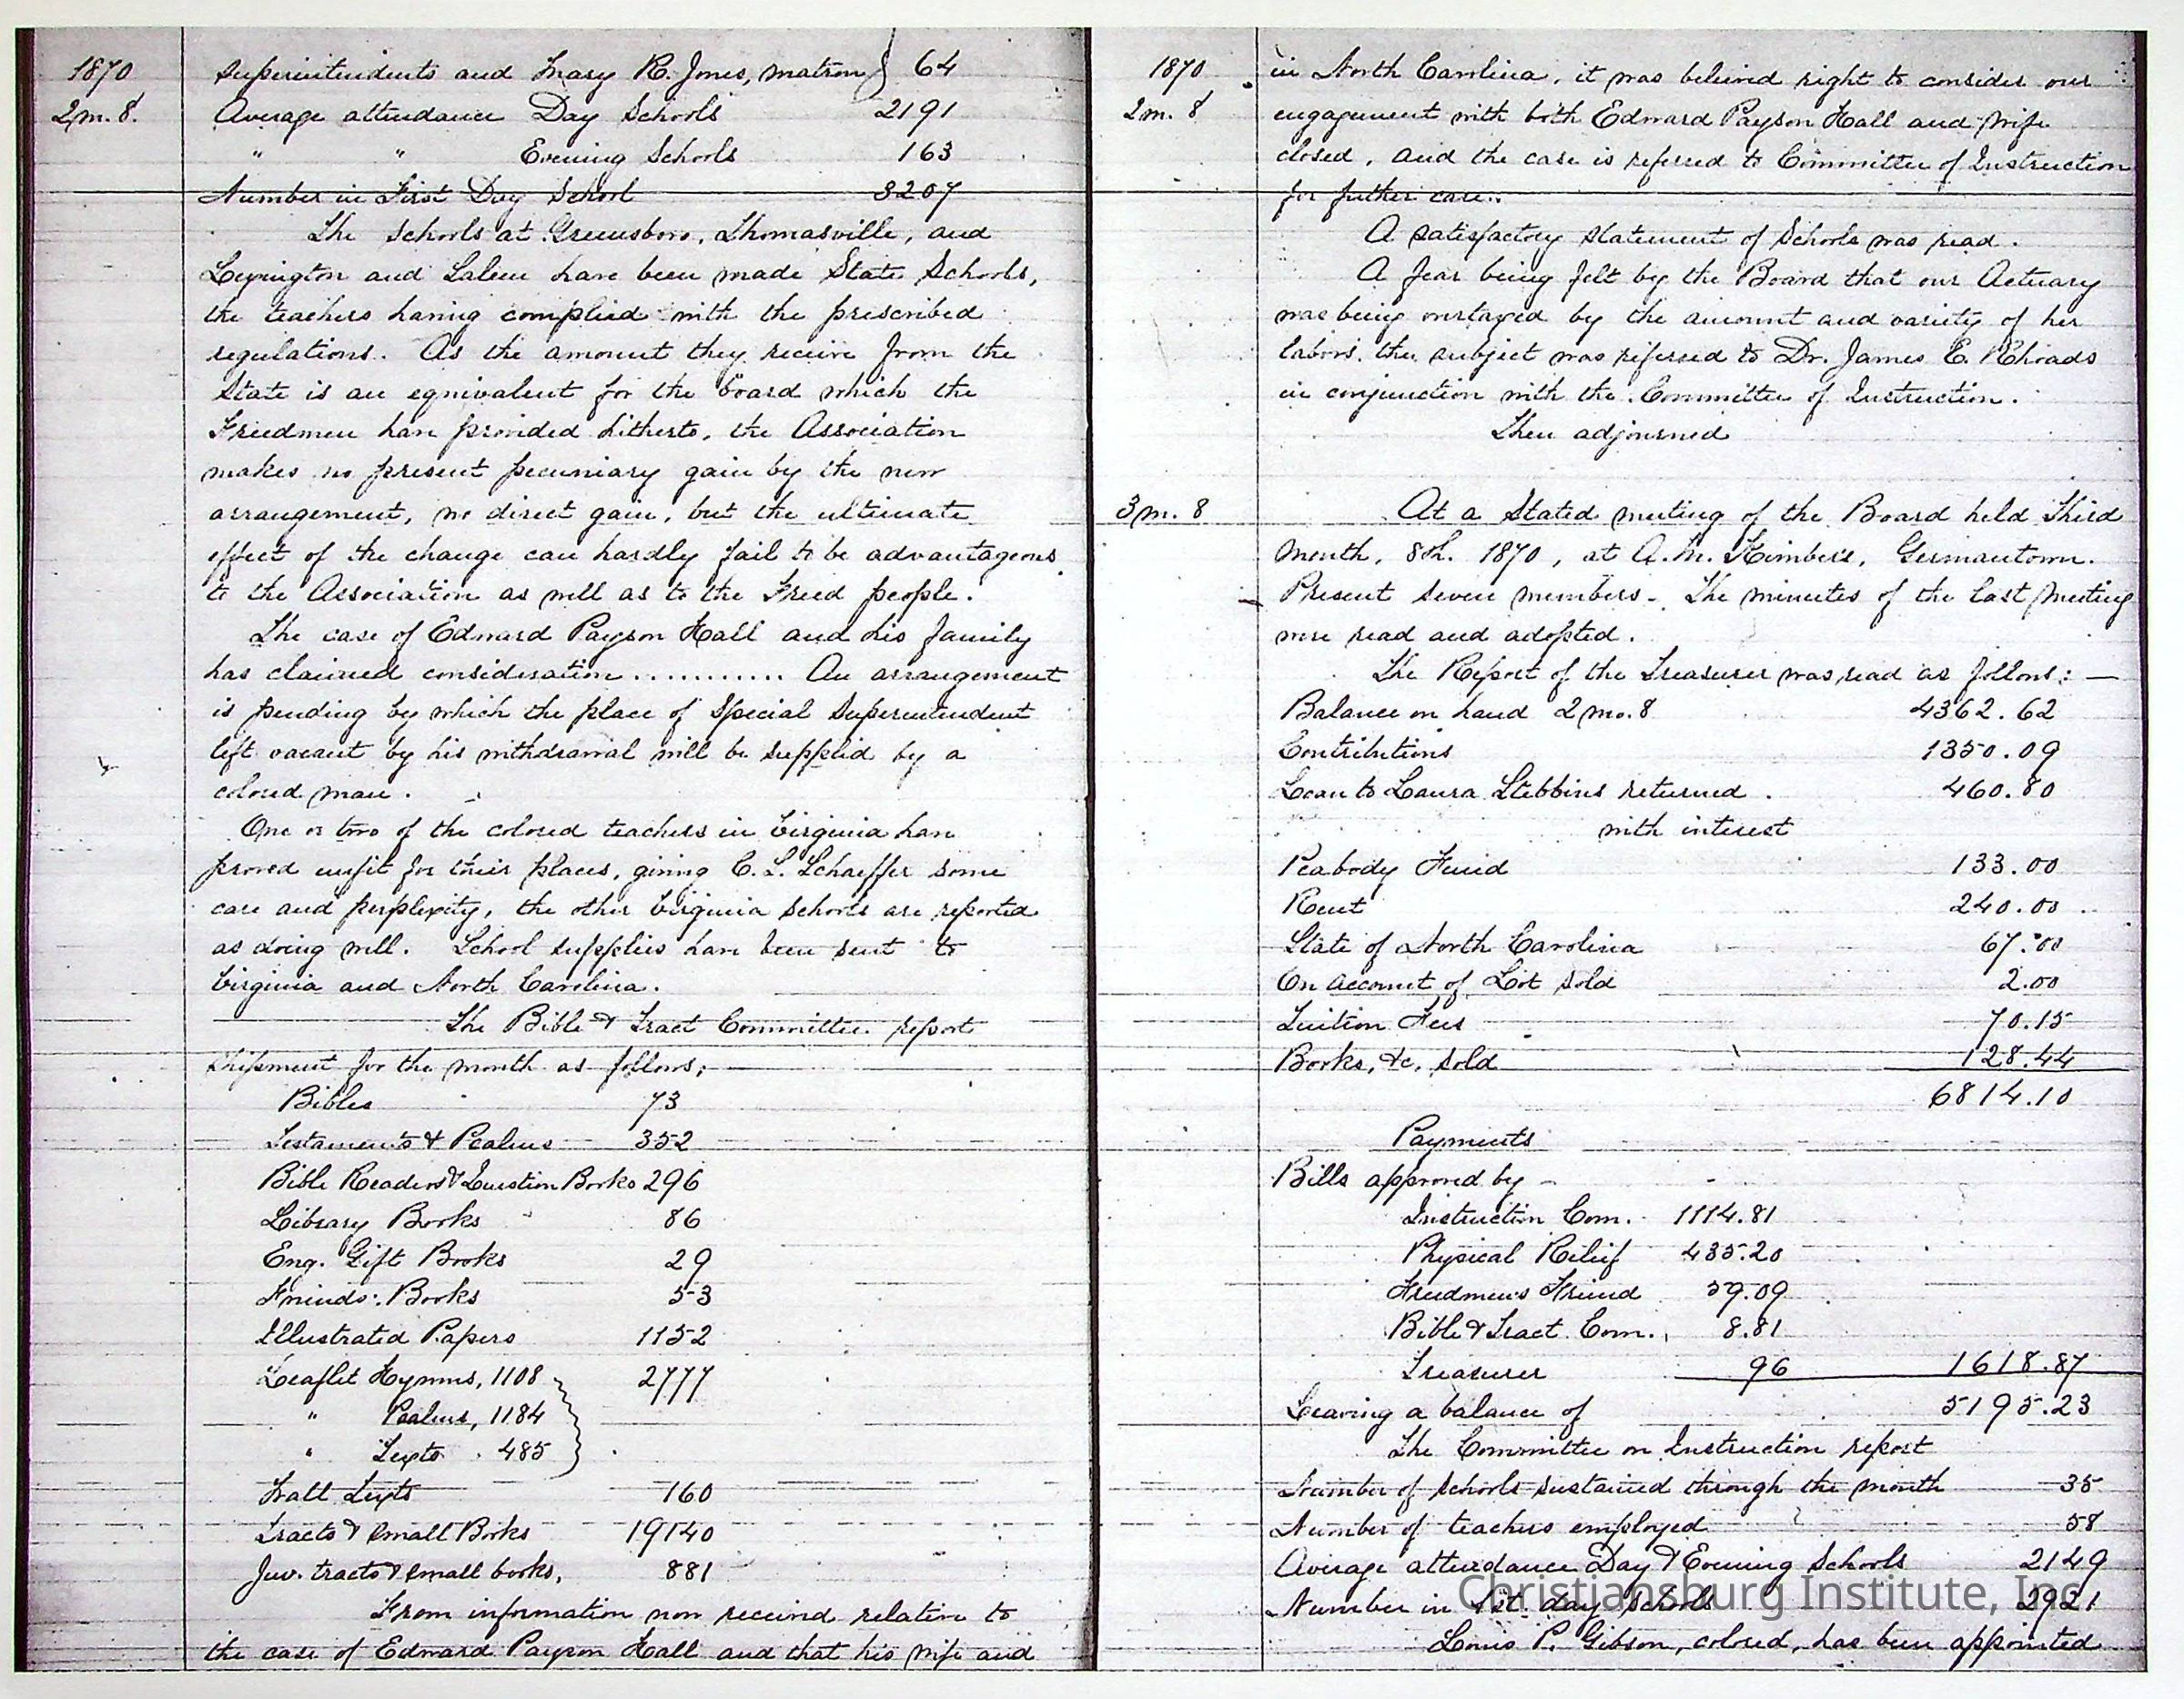 1870
2m. 8.
Superintendents and Mary R. Jones, matron } 64
Average attendance Day Schools 2191
" " Evening Schools 163
Number in First Day School 3207
The Schools at Greensboro, Thomasville, and
Lexington and Salem have been made State Schools,
the teachers having complied with the prescribed
regulations. As the amount they receive from the
State is an equivalent for the board which the
Freedmen have provided hitherto, the Association
makes no present pecuniary gain by the new
arrangement, no direct gain, but the ultimate
effect of the change can hardly fail to be advantageous
to the Association as well as to the Freed people.
The case of Edward Payson Hall and his family
has claimed consideration ........... An arrangement
is pending by which the place of Special Superintendent
left vacant by his withdrawal will be supplied by a
colored man.
One or two of the colored teachers in Virginia have
proved unfit for their places, giving C. L. Schaeffer some
care and perplexity, the other Virginia Schools are reported
as doing well. School supplies have been sent to
Virginia and North Carolina.
The Bible & Tract Committee report
Shipment for the month as follows;
Bibles 73
Testaments & Psalms 352
Bible Readers & Question Books 296
Library Books 86
Eng. Gift Books 29
Friends' Books 53
Illustrated Papers 1152
Leaflet Hymns, 1108 } 2777
" Psalms, 1184
" Texts 485
Wall Texts 160
Tracts & Small Books 19140
Juv. tracts & small books, 881
From information now received relative to
the case of Edward Payson Hall and that his wife and
1870
2m. 8
in North Carolina, it was believed right to consider our
engagement with both Edward Payson Hall and wife
closed, and the case is referred to Committee of Instruction
for futher care.
A satisfactory statement of Schools was read.
A fear being felt by the Board that our Actuary
was being overtaxed by the amount and variety of her
labors, the subject was referred to Dr. James E. Rhoads
in conjunction with the Committee of Instruction.
Then adjourned
3m. 8
At a Stated meeting of the Board held Third
month, 8th. 1870, at A. M. Kimber's, Germantown.
Present seven members. The minutes of the last meeting
were read and adopted.
The Report of the Treasurer was read as follows: —
Balance on hand 2mo. 8 4362.62
Contributions 1350.09
Loan to Laura Stebbins returned 460.80
with interest
Peabody Fund 133.00
Rent 240.00
State of North Carolina 67.00
On account of Lot sold 2.00
Tuition Fees 70.15
Books, &c, sold 128.44
6814.10
Payments
Bills approved by -
Instruction Com. 1114.81
Physical Relief 435.20
Freedmen's Friend 59.09
Bible & Tract Com. 8.81
Treasurer 96 1618.87
Leaving a balance of 5195.23
The Committee on Instruction report
Number of schools sustained through the month 35
Number of teachers employed 58
Average attendance Day & Evening Schools 2149
Number in 1st. day Schools 2921
Louis P. Gibson, colored, has been appointed
Christiansburg Institute, Inc.